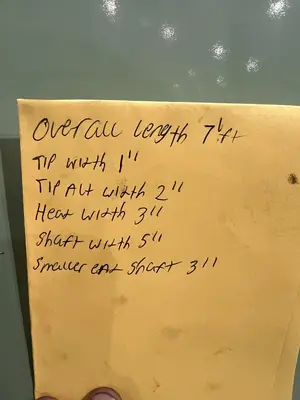 Overall length 7' ft
TIP width 1"
TIP Alt width 2"
Heat width 3"
Shaft width 5"
Smaller shaft 3"